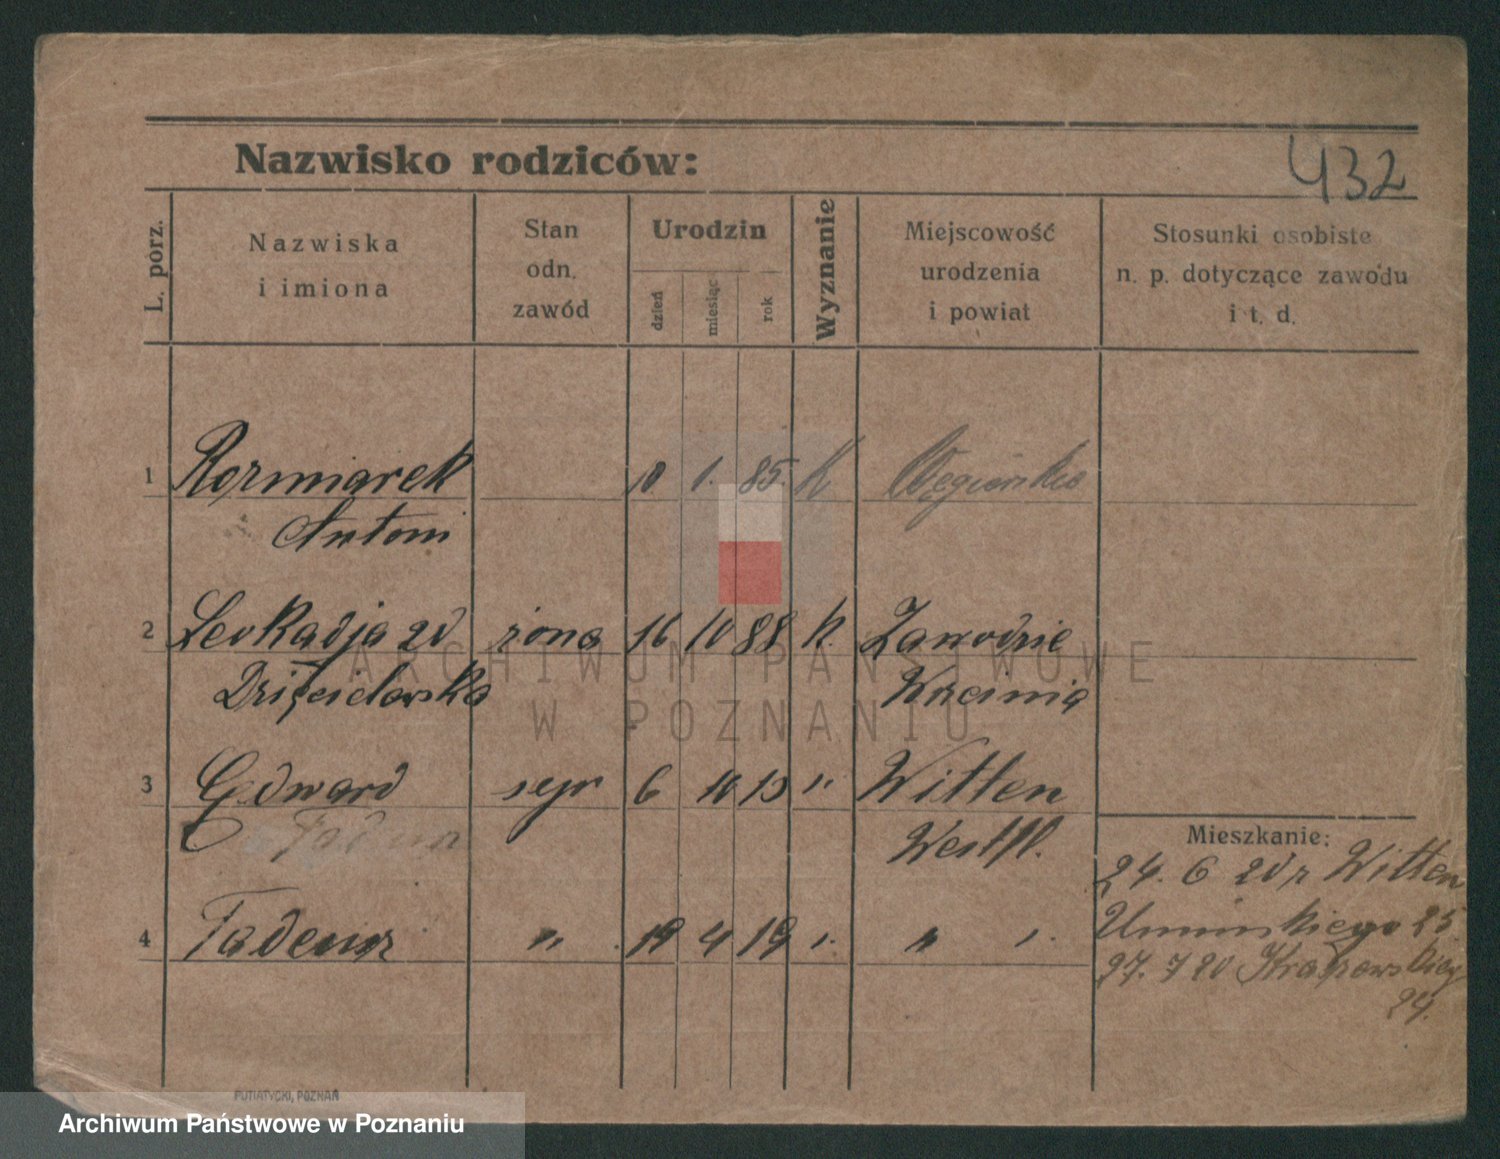 432
Nazwisko rodziców:
L. porz.
Nazwiska
i imiona
Stan
odn.
zawód
Urodzin
dzień
miesiąc
rok
Wyznanie
Miejscowość
urodzenia
i powiat
Stosunki osobiste
n. p. dotyczące zawodu
i t. d.
1 Rozmiarek 10 1. 85. K
Antoni
2 Leokadja zd żona 16 10 88 k. Zawodzie
Dzięcielowska Wrześnią
3 Edward syn 6 10 13 " Witten
Westfl.
4 Tadeusz " 19 4 19 " "
Mieszkanie:
24. 6 20 z Witten
Umińskiego 25.
27. 7 20
24.
PUTIATYCKI, POZNAŃ
ARCHIWUM PAŃSTWOWE
W POZNANIU
Archiwum Państwowe w Poznaniu